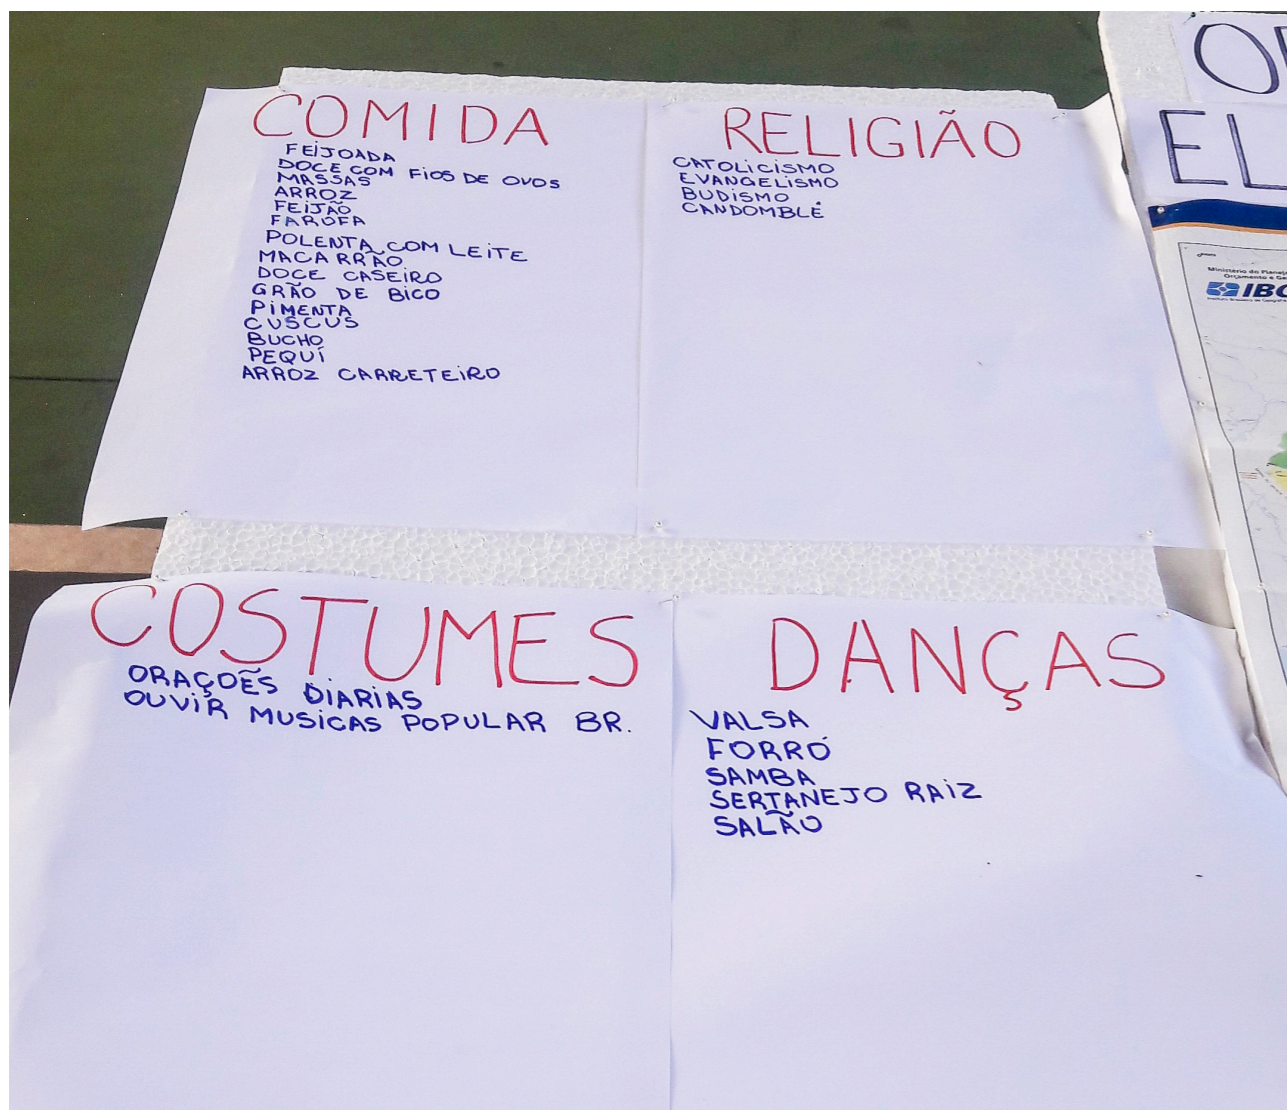 COMIDA
FEIJOADA
DOCE COM FIOS DE OVOS
MASSAS
ARROZ
FEIJÃO
FAROFA
POLENTA COM LEITE
MACARRÃO
DOCE CASEIRO
GRÃO DE BICO
PIMENTA
CUSCUS
BUCHO
PEQUÍ
ARROZ CARRETEIRO
RELIGIÃO
CATOLICISMO
EVANGELISMO
BUDISMO
CANDOMBLÉ
COSTUMES
ORAÇÕES DIARIAS
OUVIR MUSICAS POPULAR BR.
DANÇAS
VALSA
FORRÓ
SAMBA
SERTANEJO RAIZ
SALÃO
Ministério do